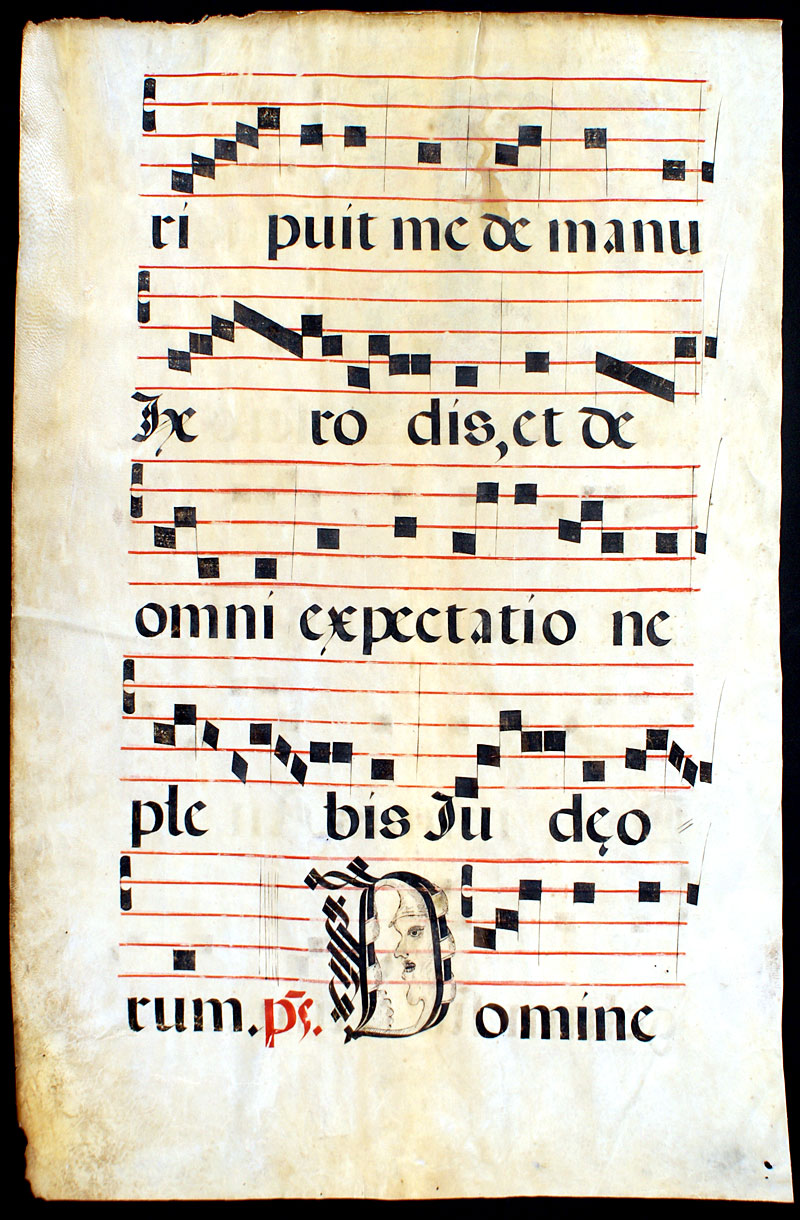 ri puit me de manu
He ro dis, et de
omni expectatio ne
ple bis Iu dęo
rum. ps. Domine